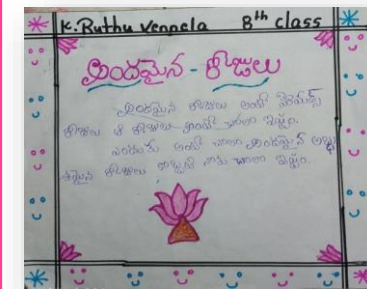 K. Ruthu vennela 8th class
అందమైన - రోజులు
అందమైన రోజులు అంటే
రోజులు ఆ రోజులు అంటే చాలా ఇష్టం.
ఎందుకు అంటే చాలా అందమైన
రోజులు నాకు చాలా ఇష్టం.